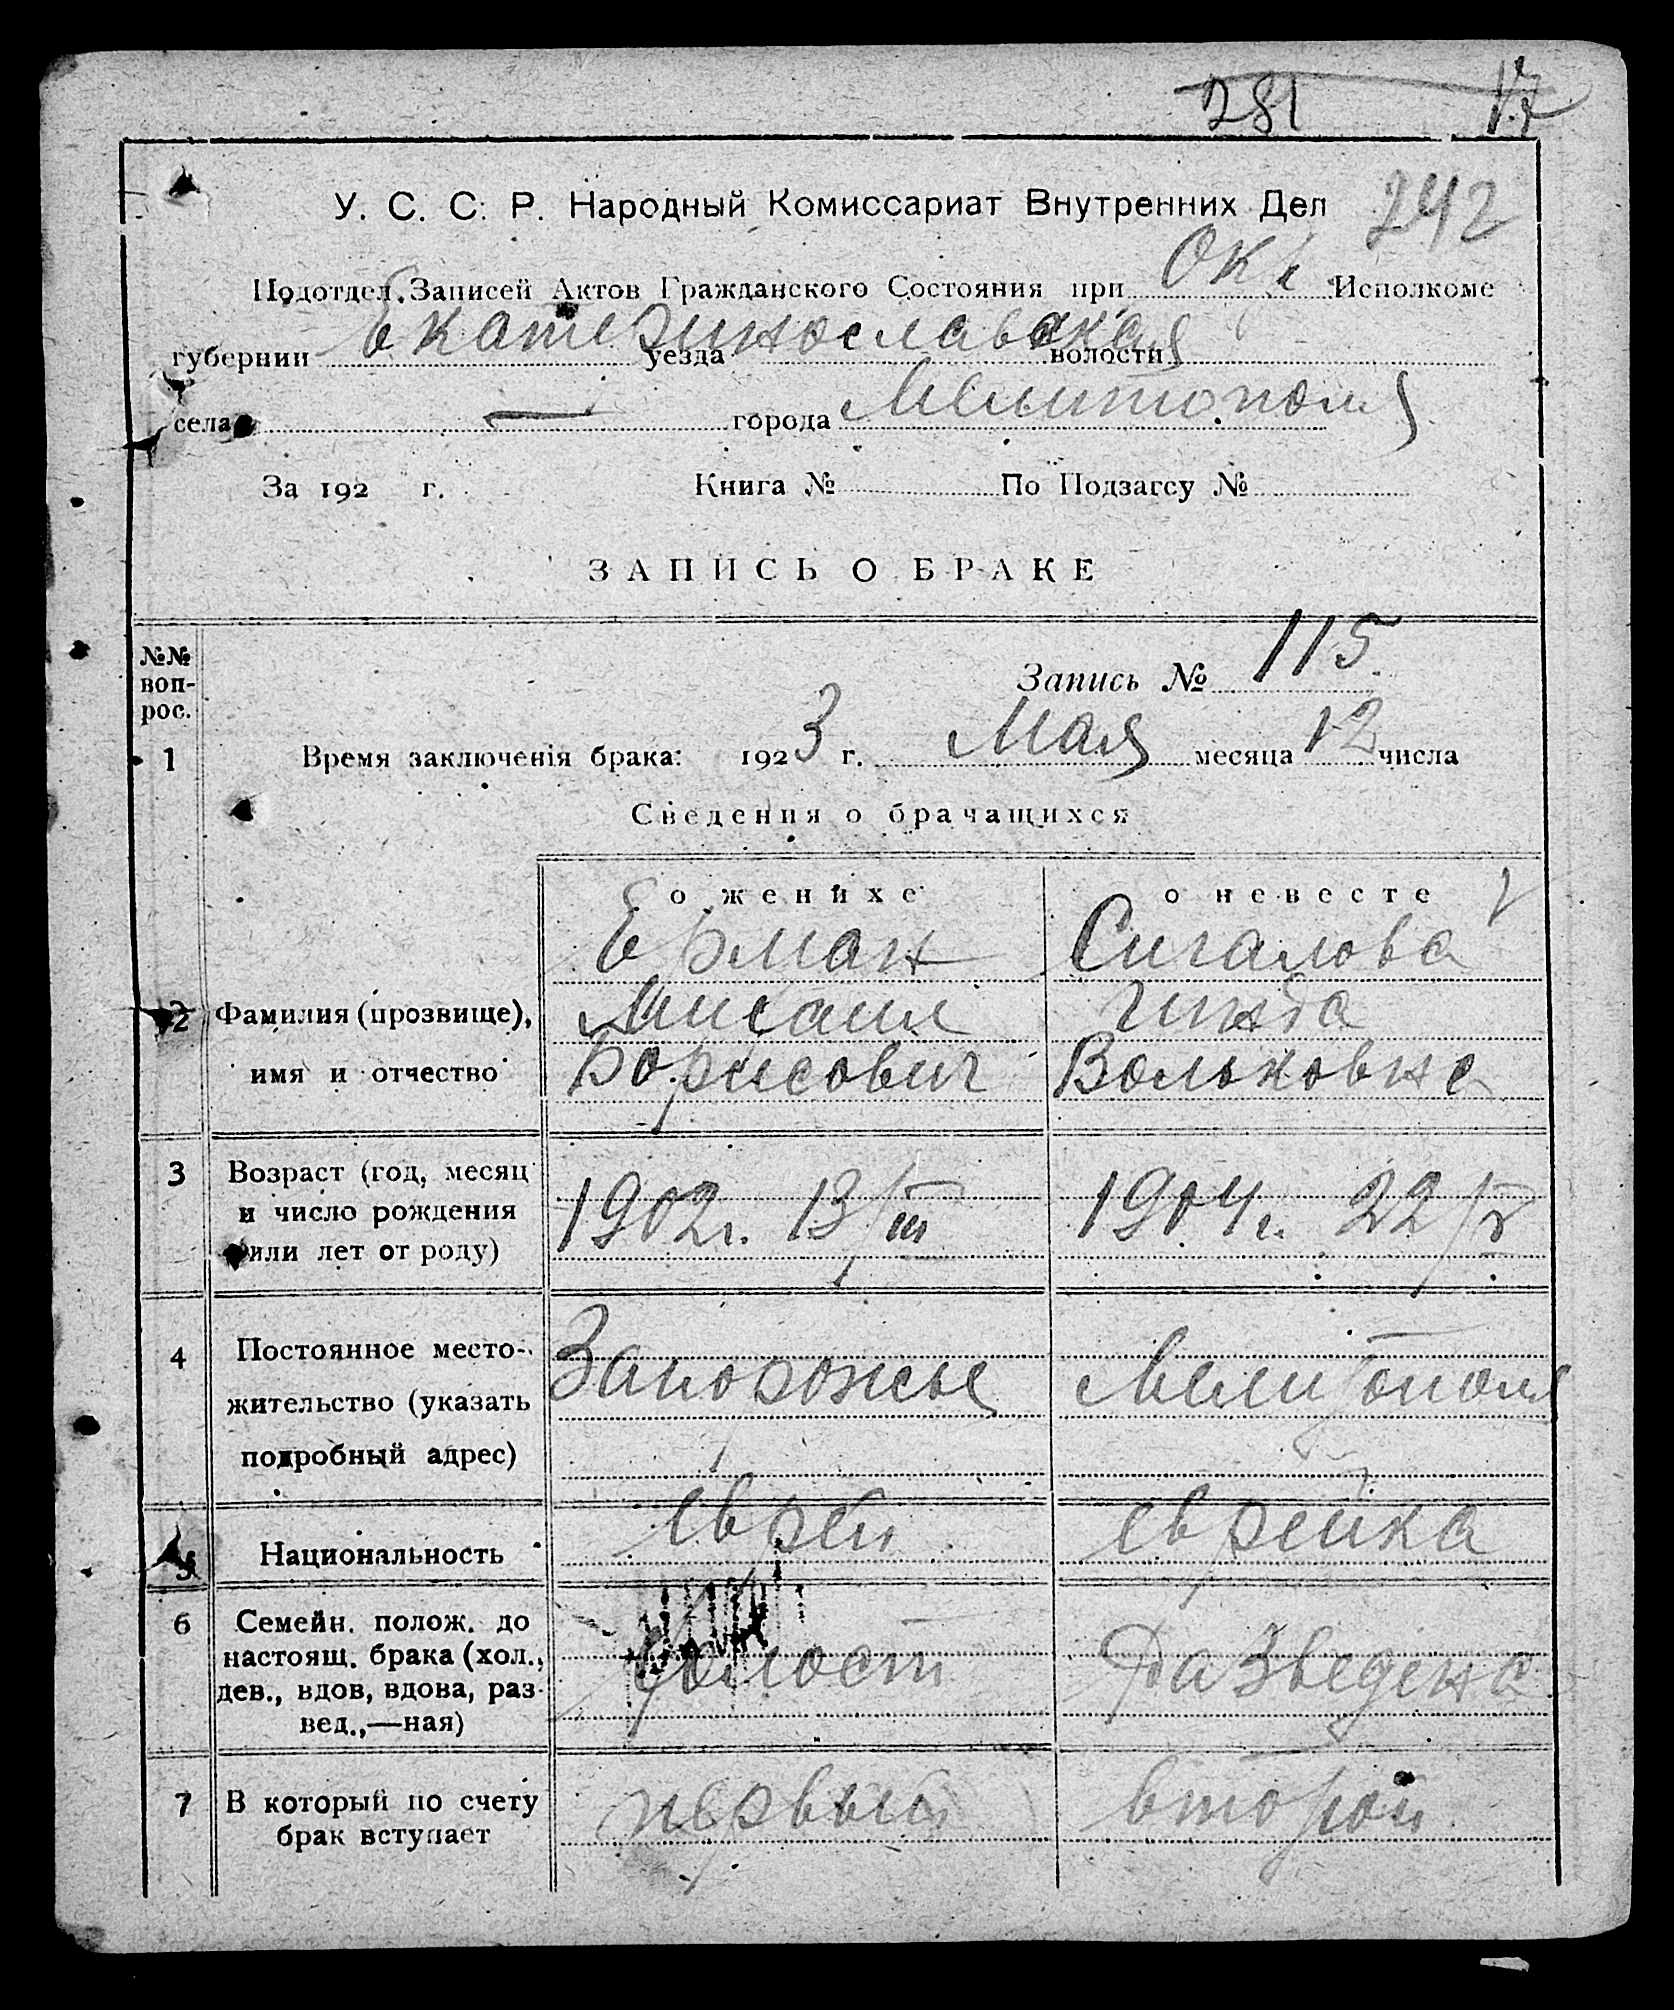 281 17
242
У. С. С. Р. Народный Комиссариат Внутренних Дел
Подотдел Записей Актов Гражданского Состояния при Окр Исполкоме
губернии Екатеринославская уезда волости
села — города Мелитополя
За 192 г. Книга № По Подзагсу №
ЗАПИСЬ О БРАКЕ
№№ воп-рос.
Запись № 115
1 Время заключенія брака: 1923 г. Мая месяца 12 числа
Сведения о брачащихся
о женихе о невесте
Ерман Сигалова
2 Фамилия (прозвище), Михаил Гинда
имя и отчество Борисович Вольховна
3 Возраст (год, месяц
и число рождения 1902 г. 13/III 1904 г. 22/V
или лет от роду)
4 Постоянное место-
жительство (указать Запорожье Мелитополь
подробный адрес)
5 Национальность еврей еврейка
6 Семейн. полож. до
настоящ. брака (хол., холост Разведена
дев., вдов, вдова, раз-
вед.,—ная)
7 В который по счету первый второй
брак вступает